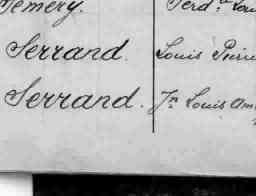 Femery. Ferd. Lou
Serrand. Louis Pierre
Serrand. Jn Louis Am